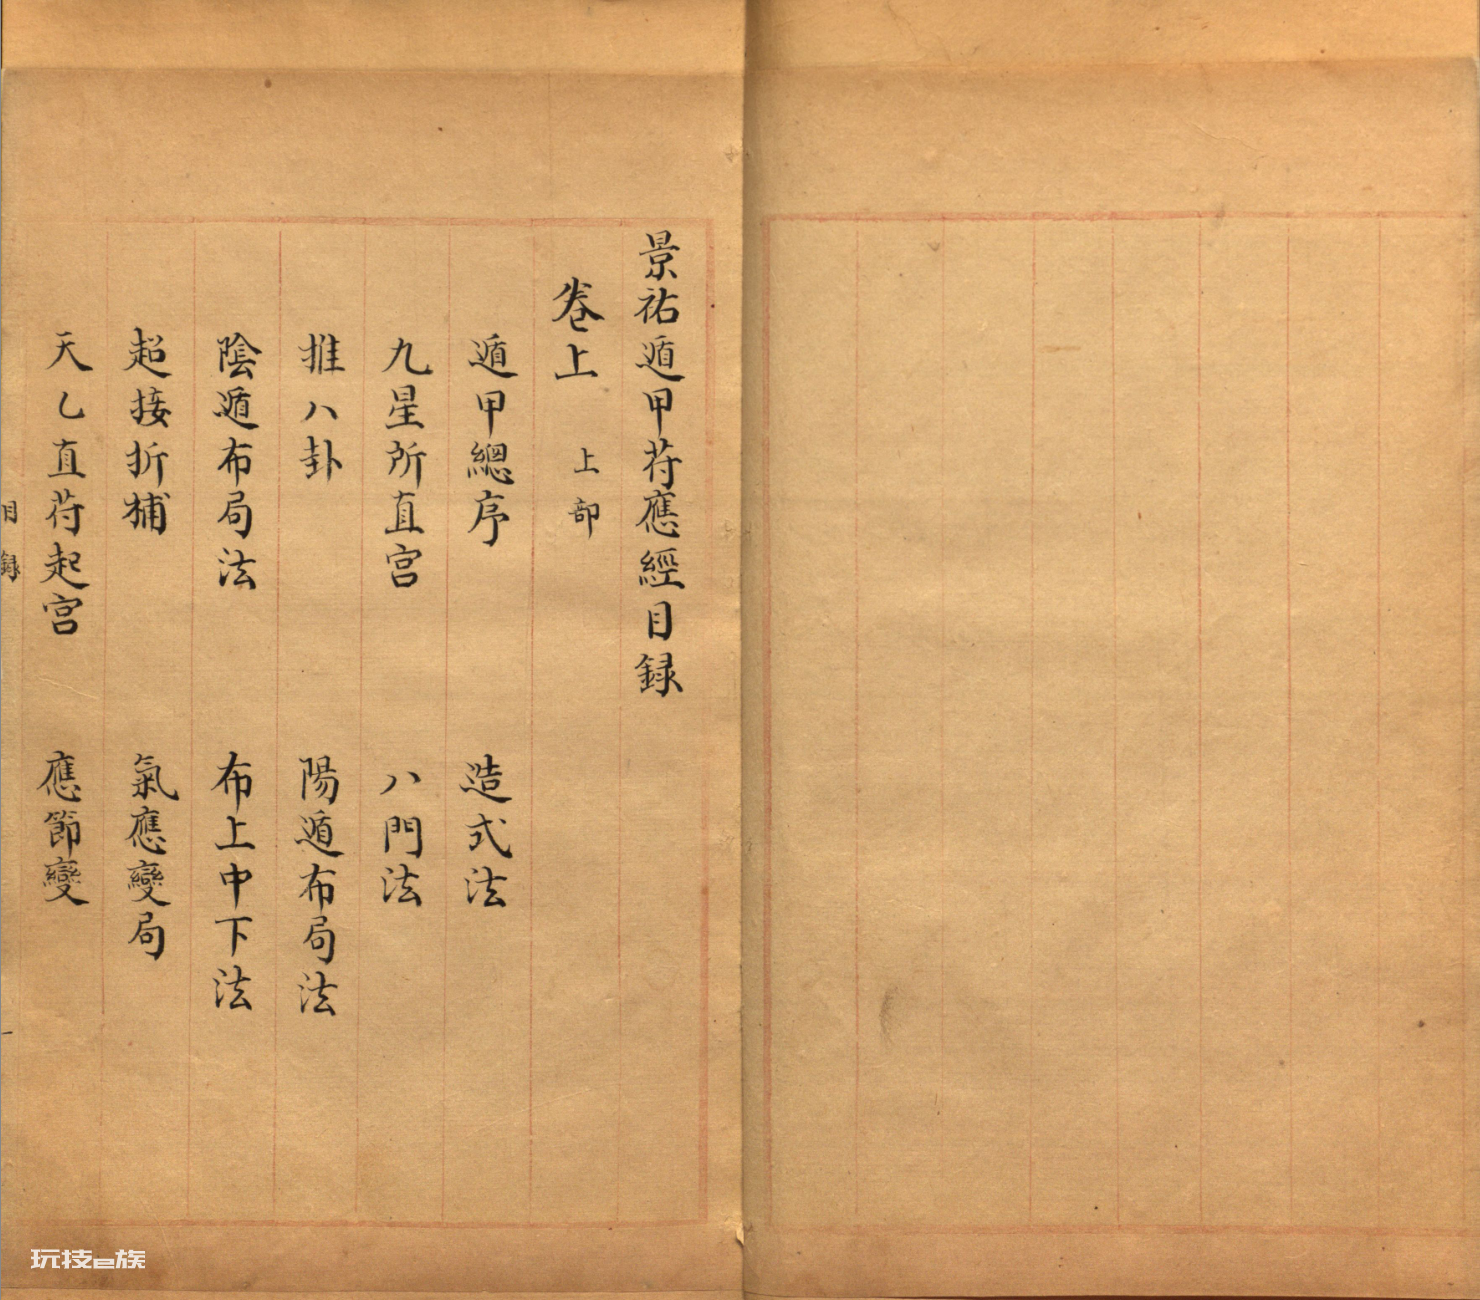 景祐遁甲苻應經目録
卷上 上部
遁甲總序 造式法
九星所直宫 八門法
推八卦 陽遁布局法
陰遁布局法 布上中下法
超接折補 氣應變局
天乙直苻起宫 應節變
目録 一
玩技e族